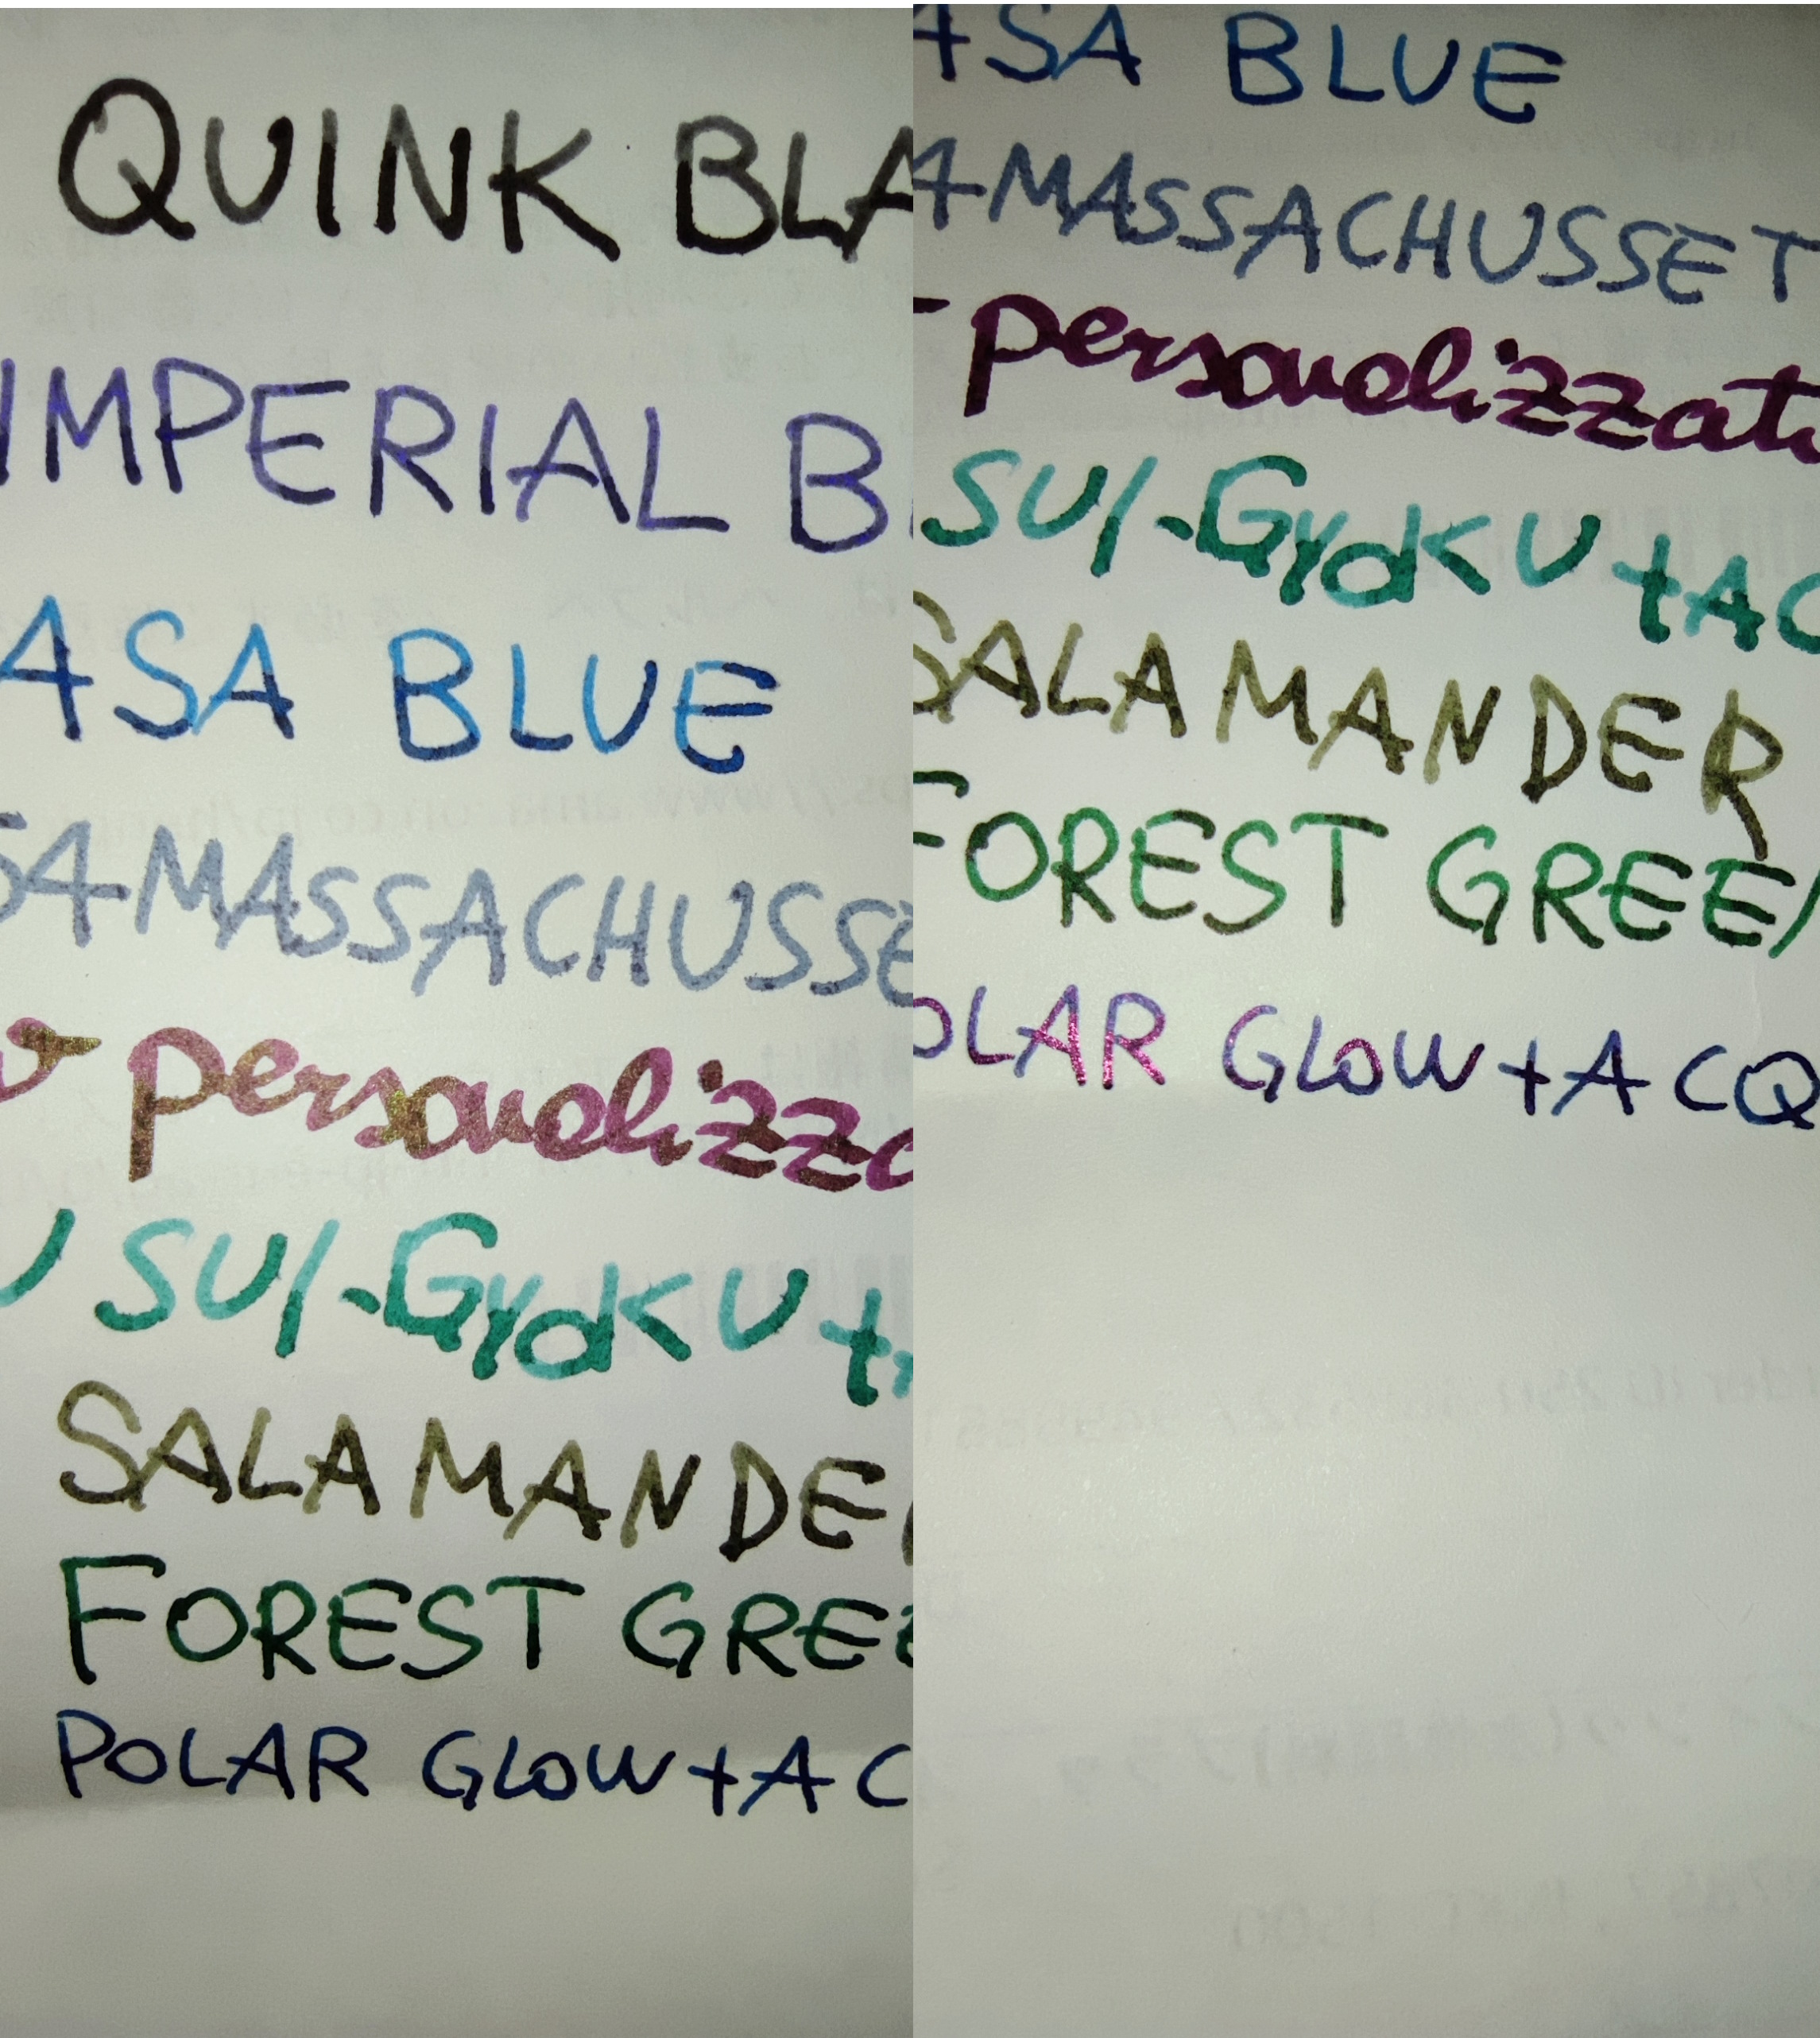 QUINK BLA
IMPERIAL B
ASA BLUE
54 MASSACHUSSE
personalizza
SUI-GYOKU +
SALAMANDE
FOREST GREE
POLAR GLOW + A C
ASA BLUE
4 MASSACHUSSET
personalizzat
SUI-GYOKU + AC
SALAMANDER
FOREST GREE
OLAR GLOW + A CQ